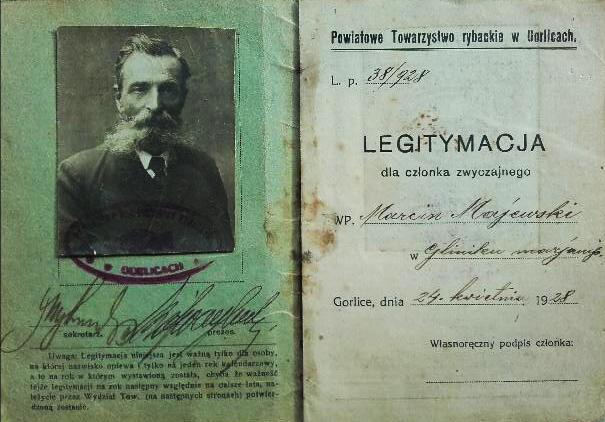 GORLICACH
sekretarz. prezes.
Uwaga: Legitymacja niniejsza jest ważną tylko dla osoby,
na której nazwisko opiewa i tylko na jeden rok kalendarzowy,
a to na rok w którym wystawioną została, chyba że ważność
tejże legitymacji na rok następny względnie na dalsze lata, na-
leżycie przez Wydział Tow. (na następnych stronach) potwier-
dzoną zostanie.
Powiatowe Towarzystwo rybackie w Gorlicach.
L. p. 38/928
LEGITYMACJA
dla członka zwyczajnego
WP. Marcin Majewski
w Gliniku marjamp.
Gorlice, dnia 24. kwietnia 1928
Własnoręczny podpis członka: